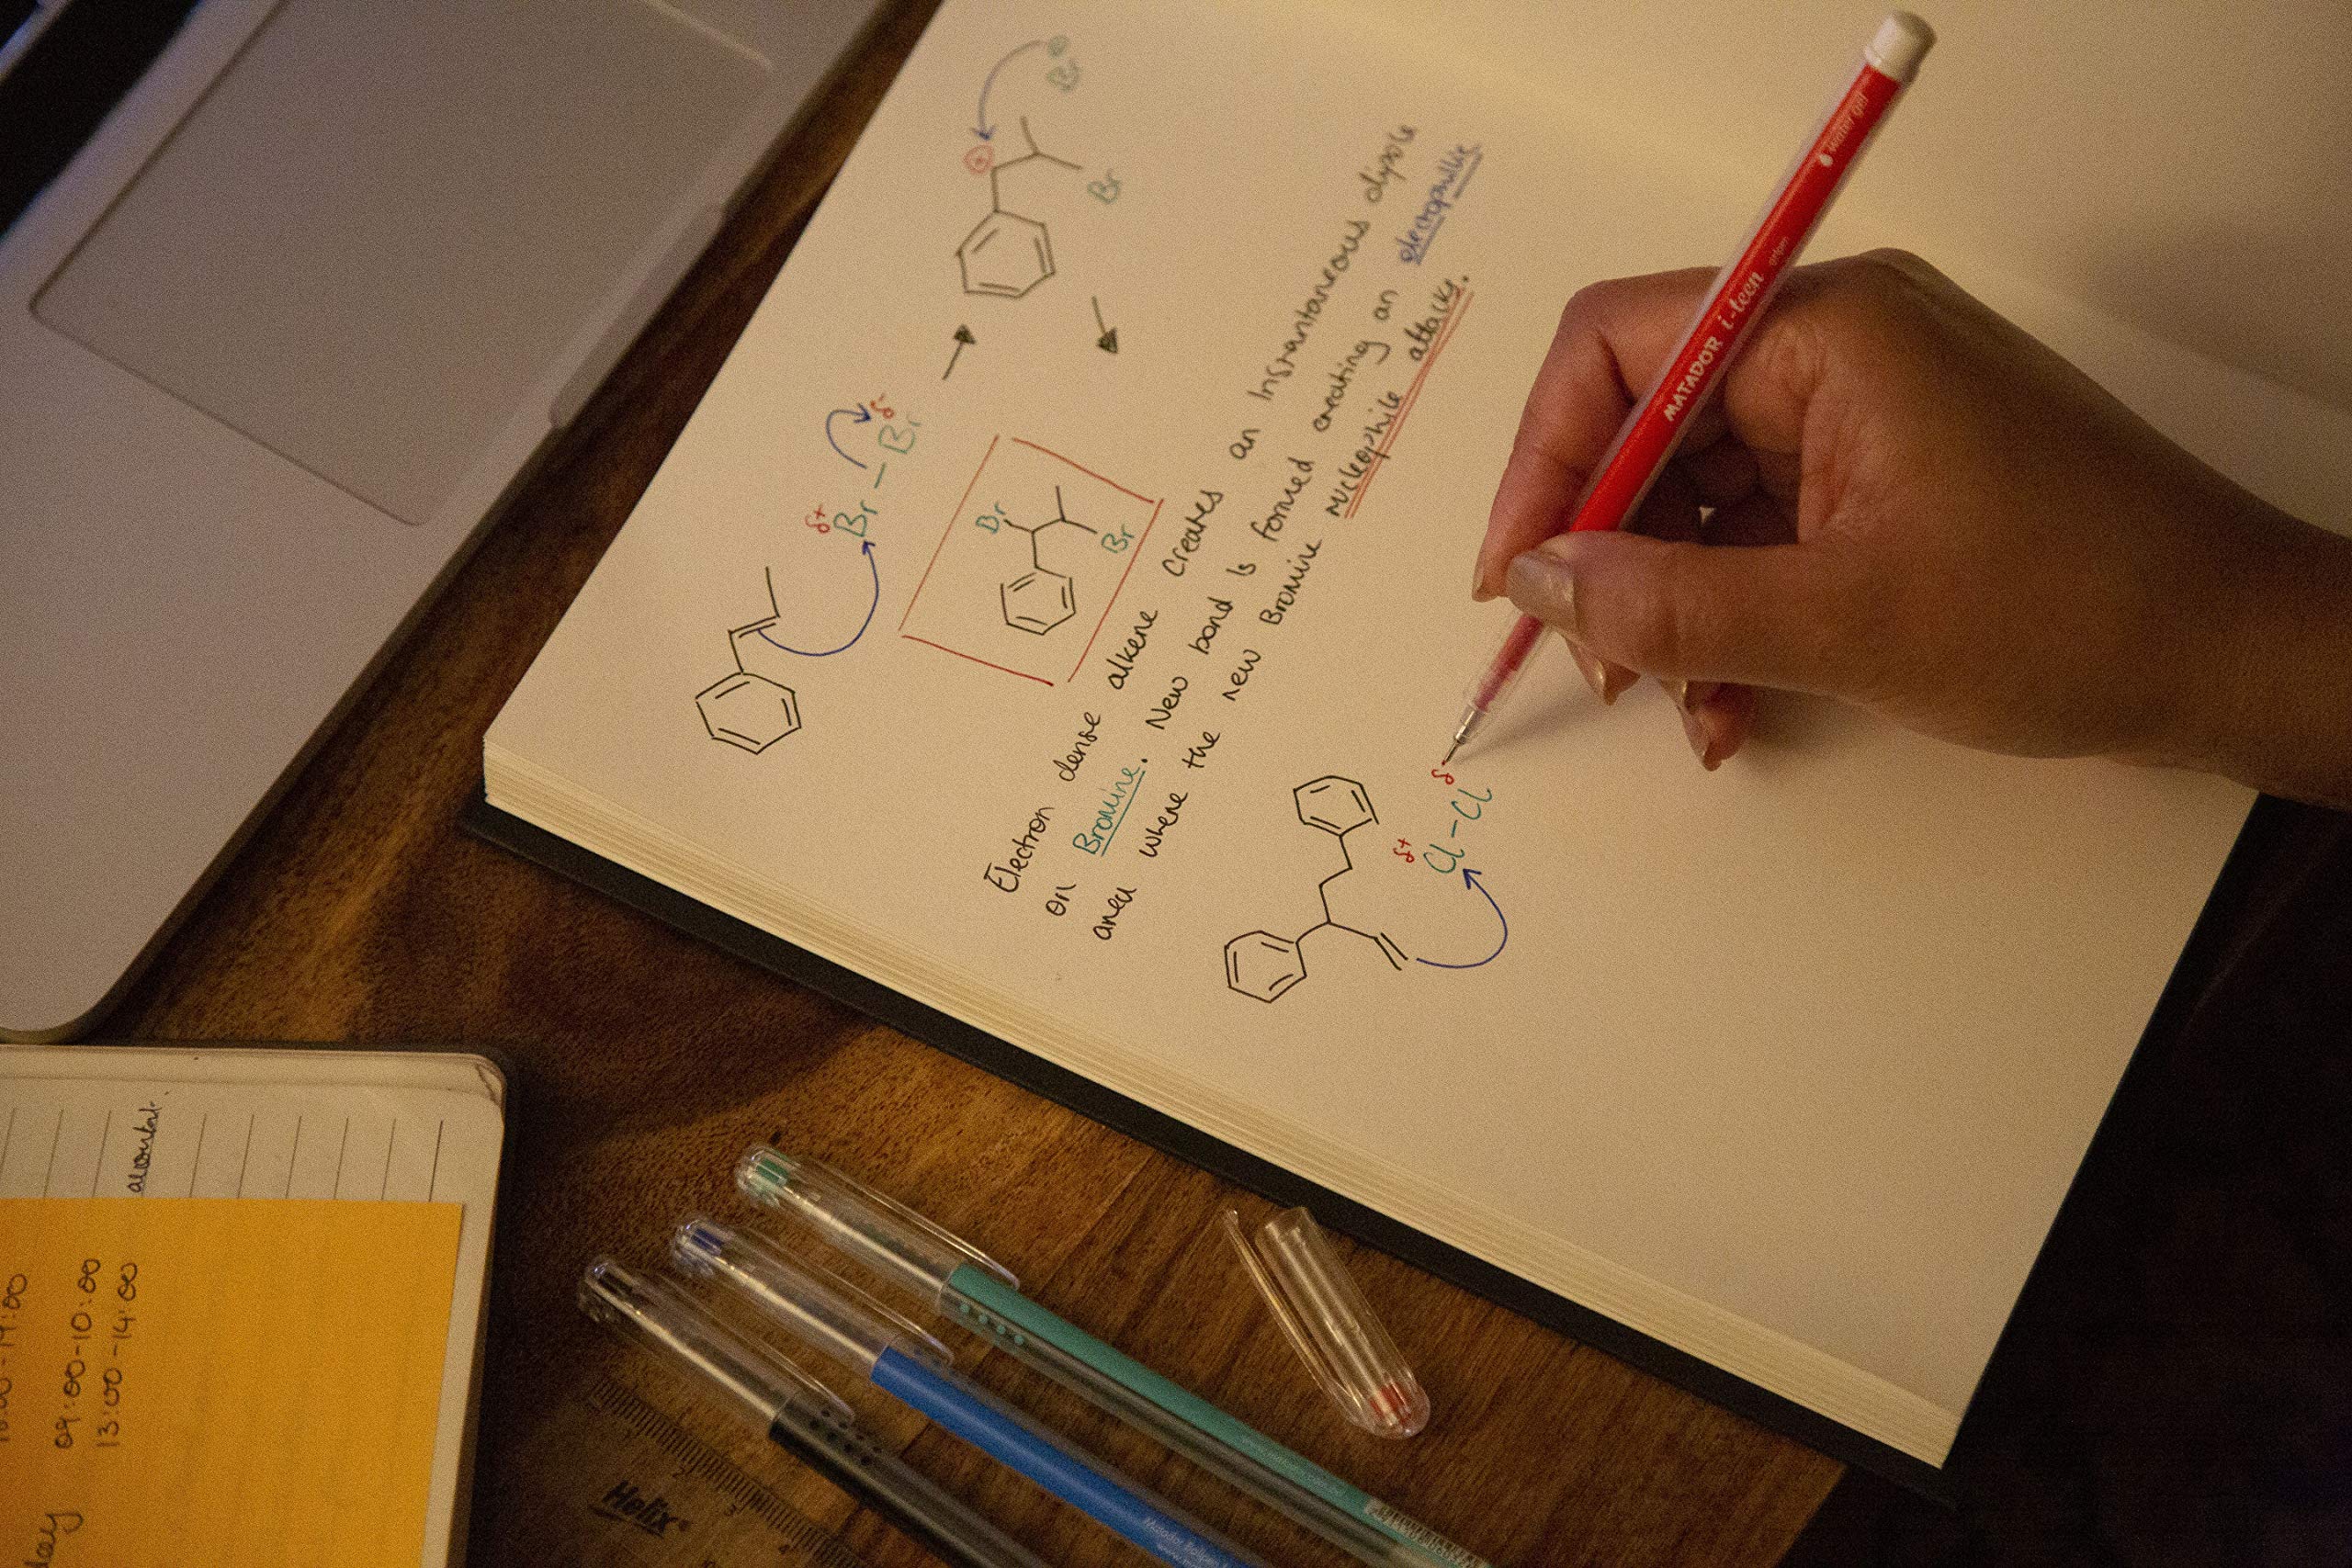 δ+
δ-
Br-Br
Br
Br
Br
Br
Electron dense alkene creates an Instantaneous dipole
on Bromine. New bond is formed creating an electrophilic
area where the new Bromine nucleophile attacks.
δ+
δ-
Cl-Cl
MATADOR i-teen orion
water gel
09:00-10:00
13:00-14:00
Helix®
2
3
4